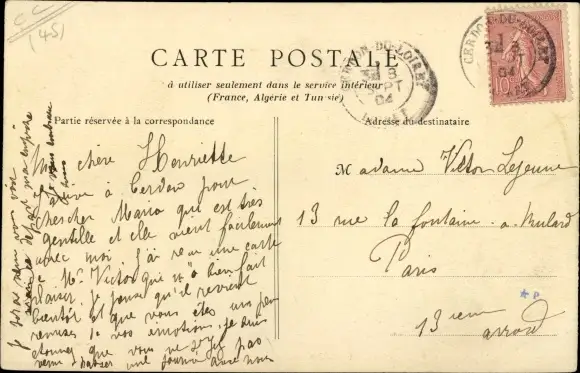 CARTE POSTALE
à utiliser seulement dans le service intérieur
(France, Algérie et Tunisie)
Partie réservée à la correspondance
Adresse du destinataire
(45)
CERDON-DU-LOIRET
3E 3
SEPT
04
LOIRET
CERDON-DU-LOIRET
3E 3
04
10
Ma chère Henriette
arrive à Cerdon pour
chercher Maria qui est très
gentille et elle vient facilement
avec moi. J'ai reçu une carte
de Mr Victor qui m'a bien fait
plaisir. Je pense qu'il revient
bientôt et que vous êtes un peu
remises de vos émotions. Je suis
étonnée que vous ne soyez pas
venu passer une journée avec nous
Madame Victor Lejeune
13 rue la fontaine a Mulard
Paris
13 eme
arrond